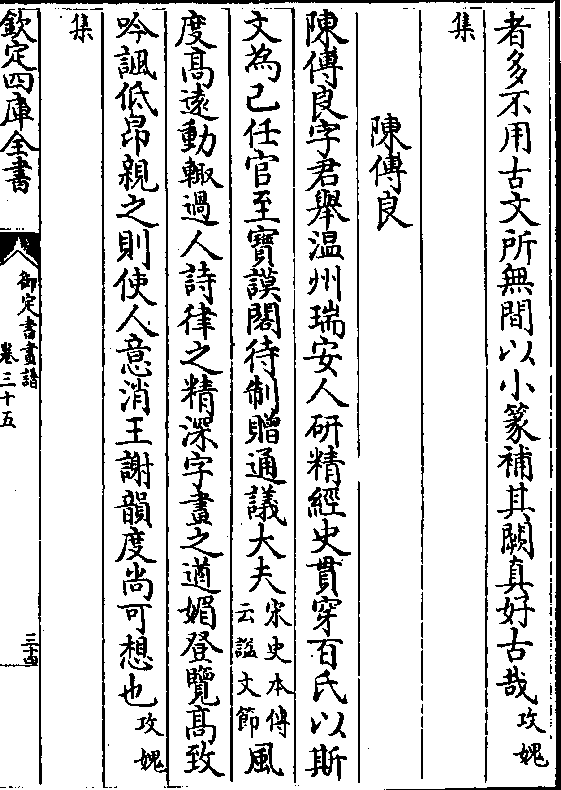 者多不用古文所無間以小篆補其闕真好古哉攻媿
集
陳傅良
陳傅良字君舉温州瑞安人研精經史貫穿百氏以斯
文為己任官至寶謨閣待制贈通議大夫宋史本傳云謚文節風
度髙遠動輙過人詩律之精深字畫之遒媚登覽髙致
吟諷低昂親之則使人意消王謝韻度尚可想也攻媿
集
欽定四庫全書
御定書畫譜
卷三十五
三十四